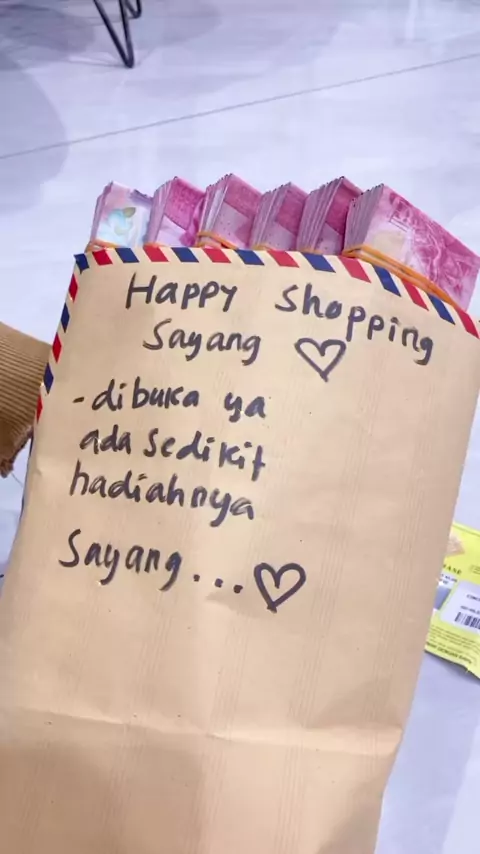 Happy Shopping
Sayang ♡
-dibuka ya
ada sedikit
hadiahnya
Sayang...♡